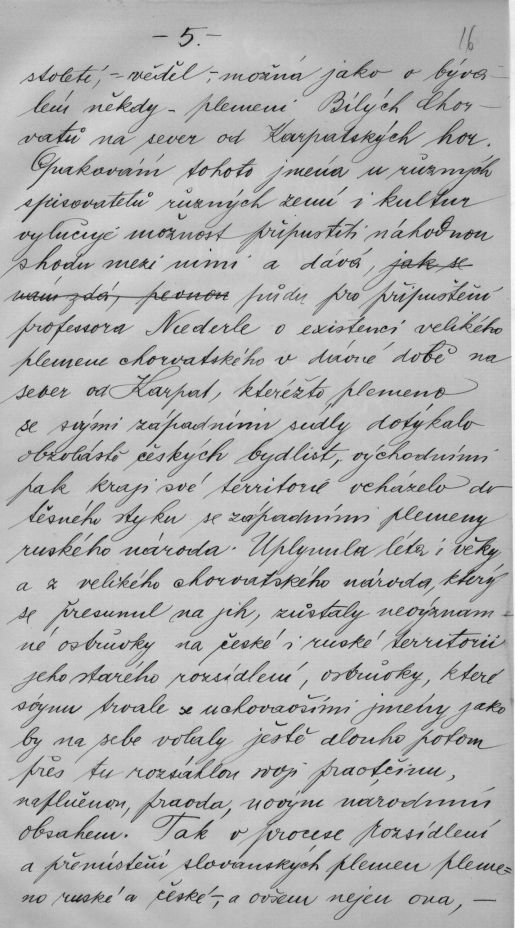 - 5. -
16
století, - věděl, - možná jako o býva-
lém někdy - plemeni Bílých Chor-
vatů na sever od Karpatských hor.
Opakování tohoto jmena u různých
spisovatelů různých zemí i kultur
vylučuje možnost připustiti náhodnou
shodu mezi nimi a dává, jak se
nám zdá, pevnou půdu pro připuštění
professora Niederle o existenci velikého
plemene chorvatského v dávné době na
sever od Karpat, kteréžto plemeno
se svými západními sídly dotýkalo
českych bydlist, východními
pak kraji své territorie vcházelo do
těsného styku se západními plemeny
ruského národa. Uplynula léta i věky
a z velikého chorvatského národa, který
se přesunul na jih, zůstaly nevýznam-
né ostrůvky na české i ruské territorii
jeho starého rozsídlení, ostrůvky, které
svými trvale se uchovavšími jmény jako
by na sebe volaly ještě dlouho potom
přes tu rozsáhlou svoji praotčinu,
naplněnou, pravda, novým národním
obsahem. Tak v procese rozsídlení
a přemístění slovanských plemen pleme-
no ruské a české -, a ovšem nejen ona, -